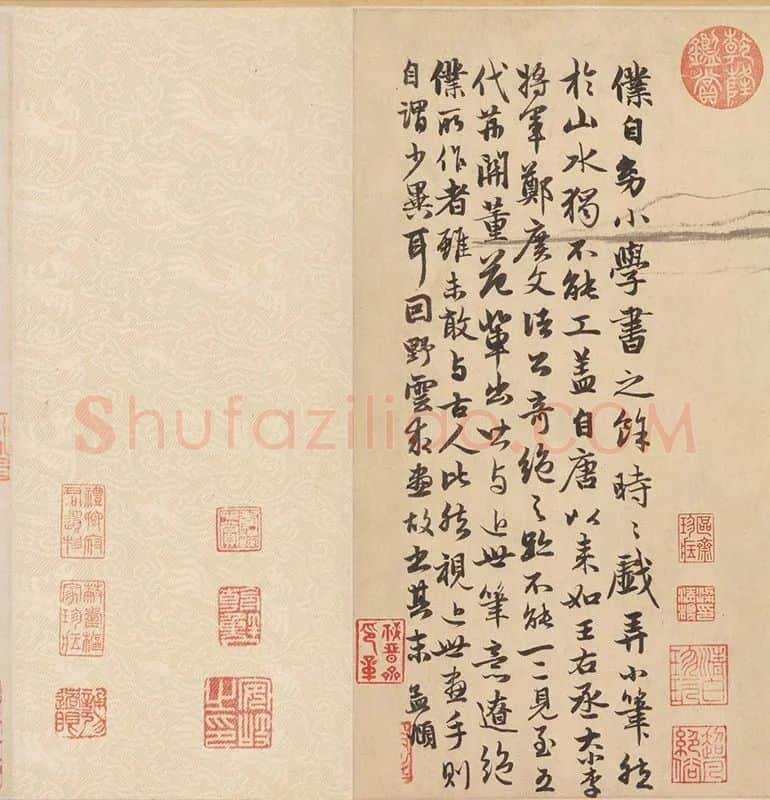 乾隆鑑賞
僕自幼小學書之餘時〻戲弄小筆然
於山水獨不能工蓋自唐以來如王右丞大小李
將軍鄭廣文諸公奇絕之跡不能一二見至五
代荊關董范輩出皆與近世筆意遼絕
僕所作者雖未敢與古人比然視近世畫手則
自謂少異耳因野雲求畫故書其末孟頫
Shufaziliao.COM